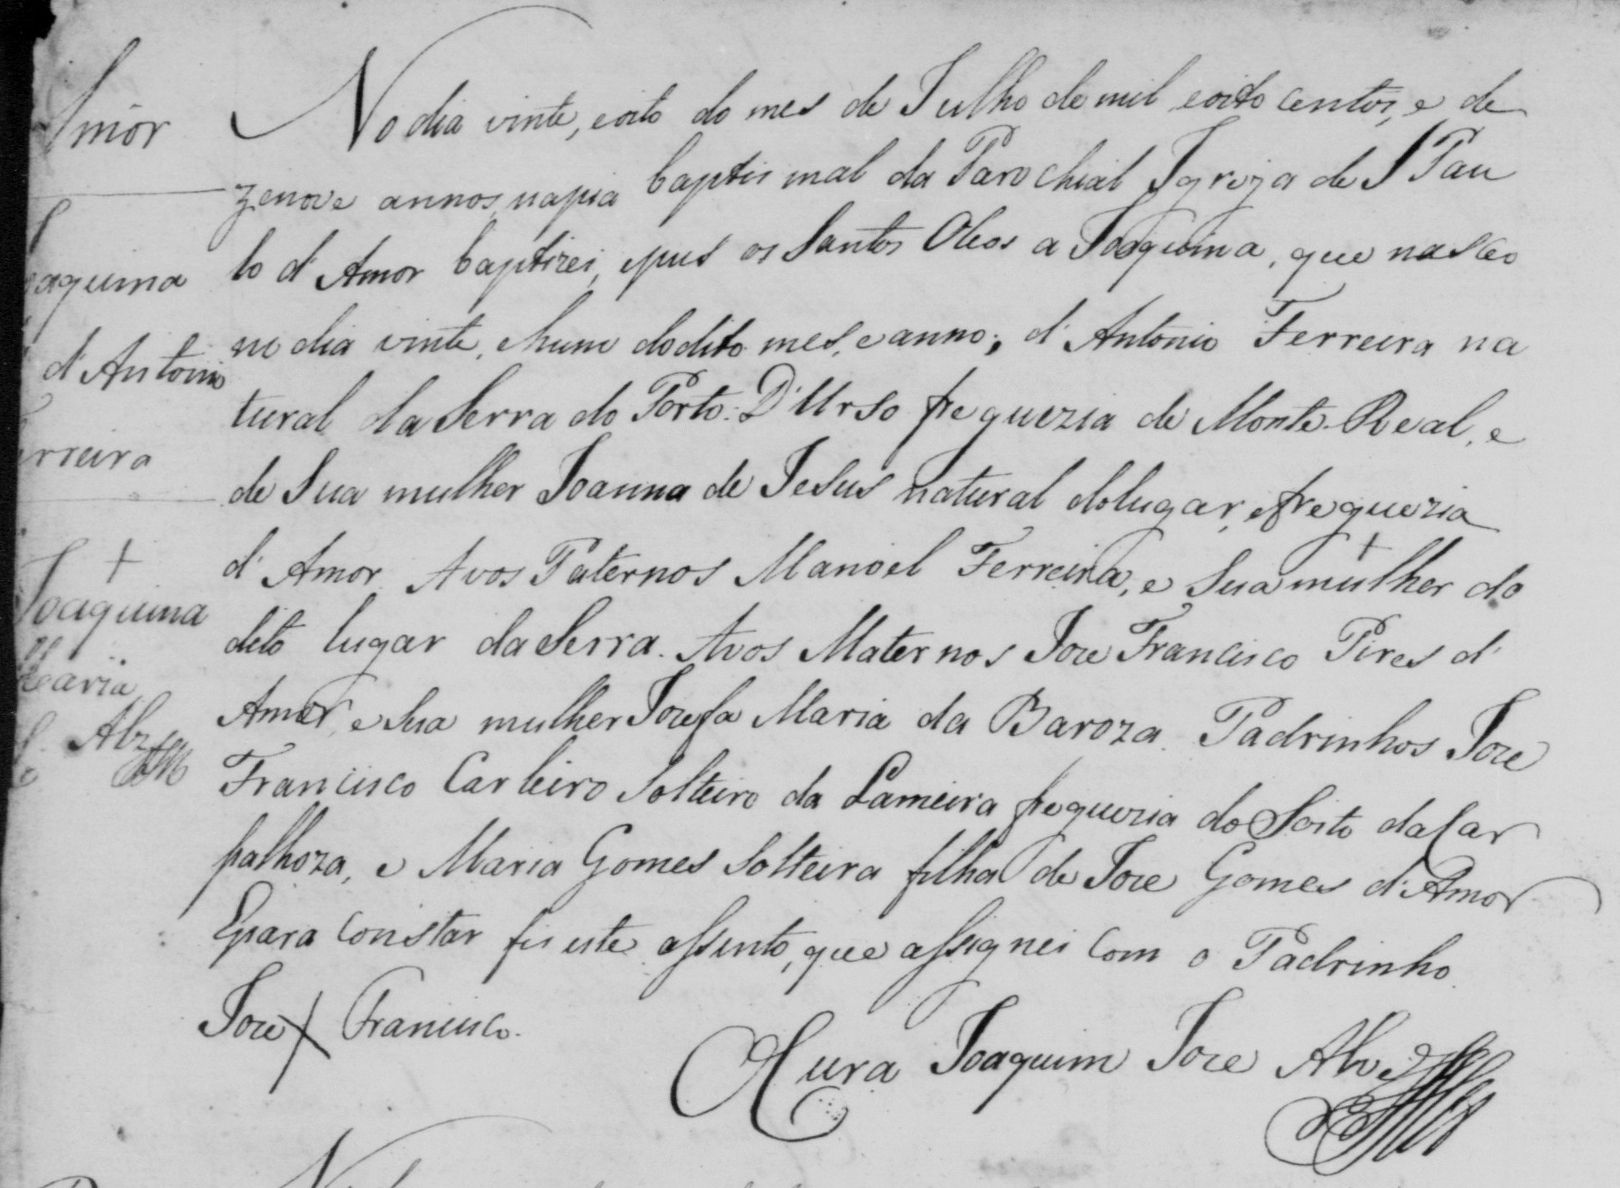 Amor
Joaquina
d' Antonio
Ferreira
+
Joaquina
Maria
Alz
No dia vinte, eoito do mes de Julho de mil eoito centos, e de
zenove annos, napia baptismal da Parochial Igreja de S Pau
lo d' Amor baptizei, epus os Santos Oleos a Joaquina, que nasceo
no dia vinte, ehum dodito mes, e anno; d' Antonio Ferreira na
tural da Serra do Porto. D'Urso freguezia de Monte-Real, e
de Sua mulher Joanna de Jesus natural dolugar, efreguezia
d' Amor. Avos Paternos Manoel Ferreira, e Sua + mulher do
dito lugar da Serra. Avos Maternos Joze Francisco Pires d'
Amor, e Sua mulher Jozefa Maria da Baroza. Padrinhos Joze
Francisco Carleiro Solteiro da Lameira freguezia do Soito da Car
palhoza, e Maria Gomes Solteira filha de Joze Gomes d'Amor
Epara constar fis este assento, que assignei com o Padrinho.
Joze X Francisco.
O Cura Joaquim Joze Alves